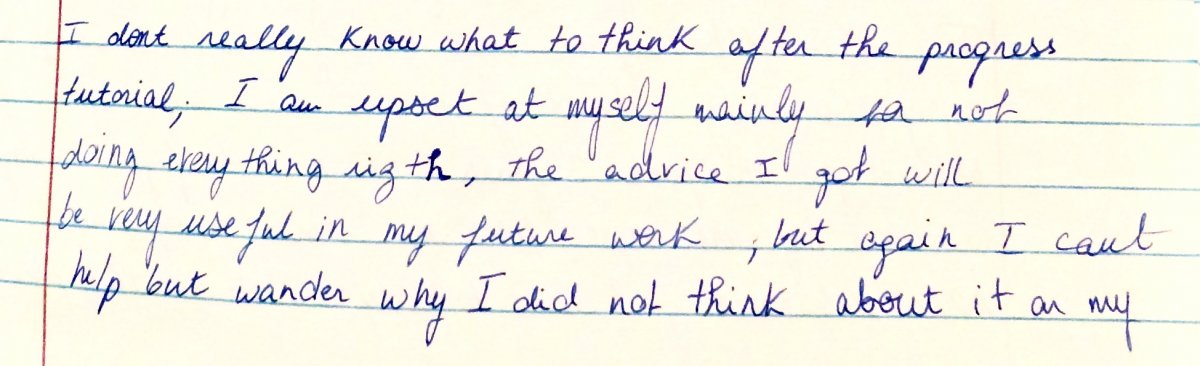 I dont really know what to think after the progress
tutorial, I am upset at myself mainly for not
doing every thing rigth, the advice I got will
be very useful in my future work, but again I cant
help but wander why I did not think about it on my